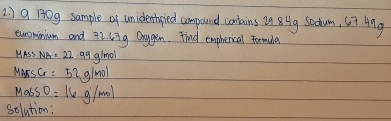 2.) a 170g sample of unidentified compound contains 29.84g Sodium, 67.49g
curomimium and 72.67g Oxygen. Find empherical Formula
MASS NA = 22.99 g/mol
MASS Cr = 52 g/mol
MASS O = 16 g/mol
Solution: